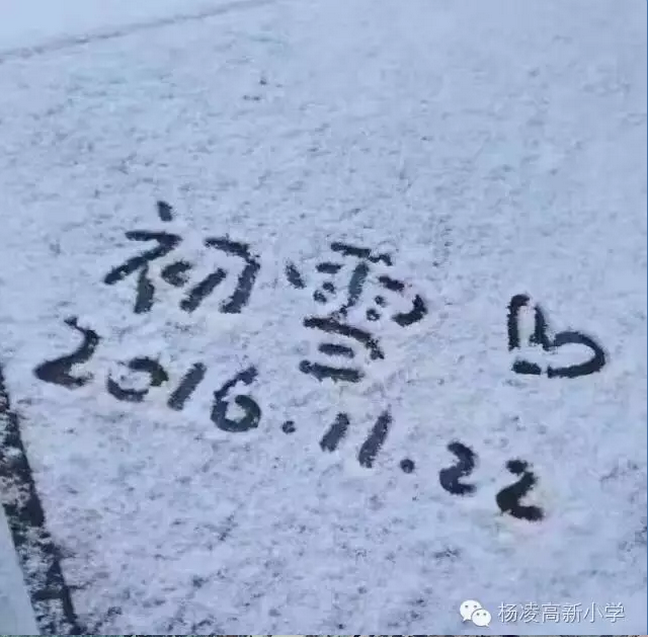 初雪
2016.11.22
杨凌高新小学